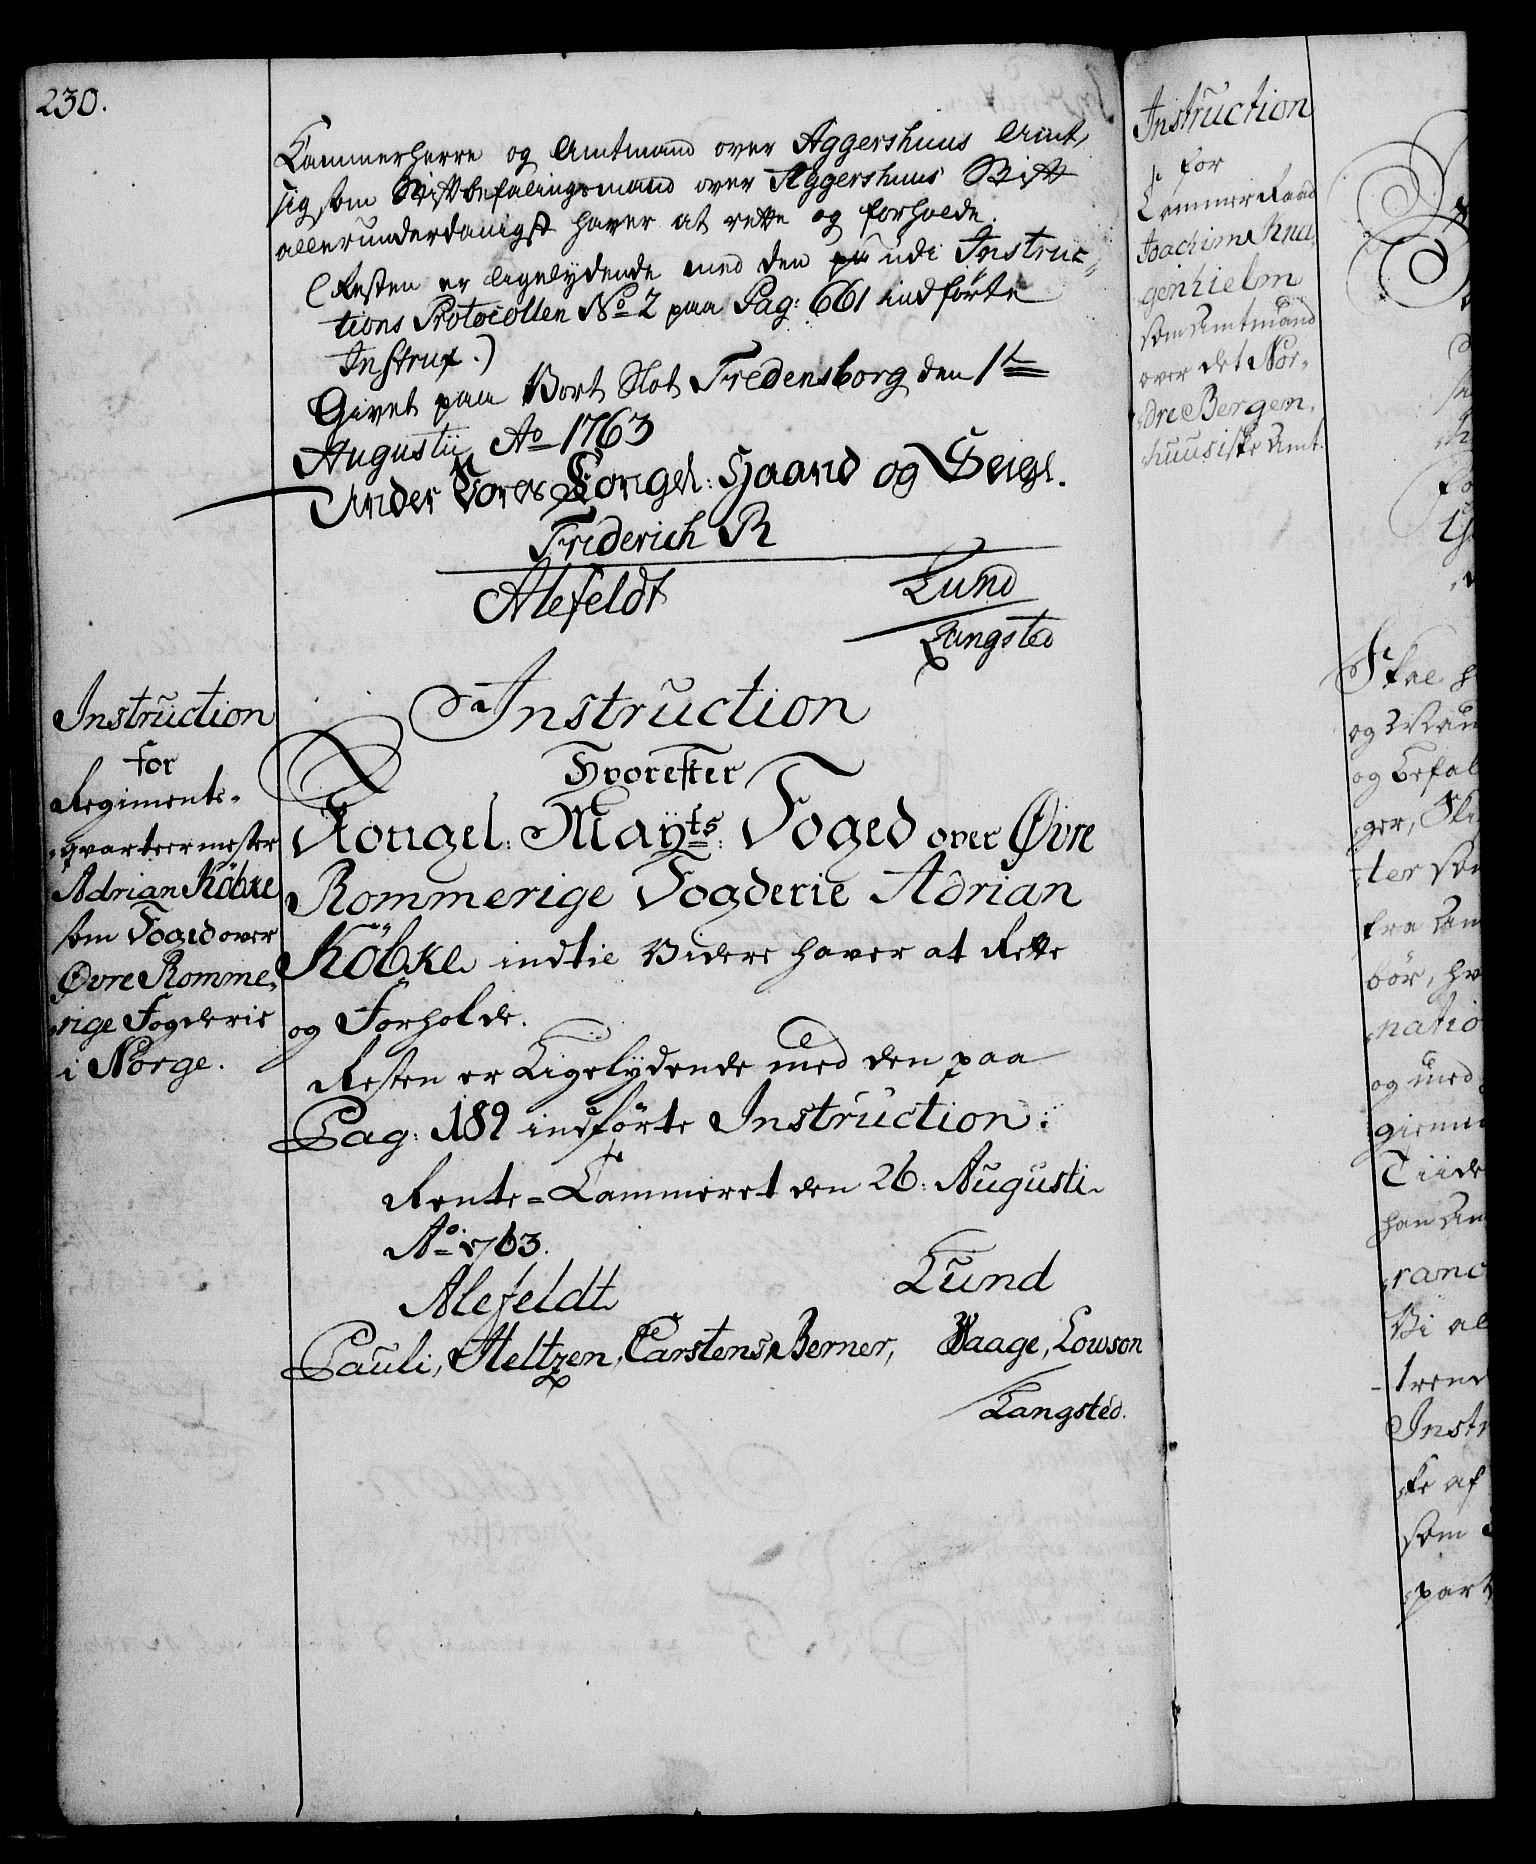 230.
Cammerherre og Amtmand over Aggershuus Amt,
sig som Stiftbefalingsmand over Aggershuus Stift
allerunderdanigst haver at rette og forholde.
(Resten er ligelydende med den udi Instruc-
tions Protocollen No 2 paa Pag: 661 indførte
Instrux.)
Givet paa Vort Slot Fredensborg den 1te
Augustij Ao 1763
Under Vores Kongel: Haand og Seigl.
Friderich R
Alefeldt Lund
Langsted
Instruction
for
Regiments-
qvarteermester
Adrian Köbke
som Foged over
Øvre Romme,
rige Fogderie
i Norge.
Instruction
Hvorefter
Kongel: Mayts: Foged over Øvre
Rommerige Fogderie Adrian
Köbke indtil Videre haver at Rette
og Forholde.
Resten er Ligelydende med den paa
Pag: 189 indførte Instruction:
Rente-Cammeret den 26: Augusti
Ao 1763.
Alefeldt Lund
Pauli, Heltzen, Carstens, Berner, Waage, Lowson
Langsted.
Instruction
for
Cammer Raad
Joachim Kna,
genhielm
som Amtmand
over det Nor,
dre Bergen,
huusiske Amt.
Skal h
og Mau
og befal
ger,
ter som
fra Am
bör, hv
natio
og med
giennu
Tiide
han
ranc
Vi al
trend
Instr
ke af
som
part